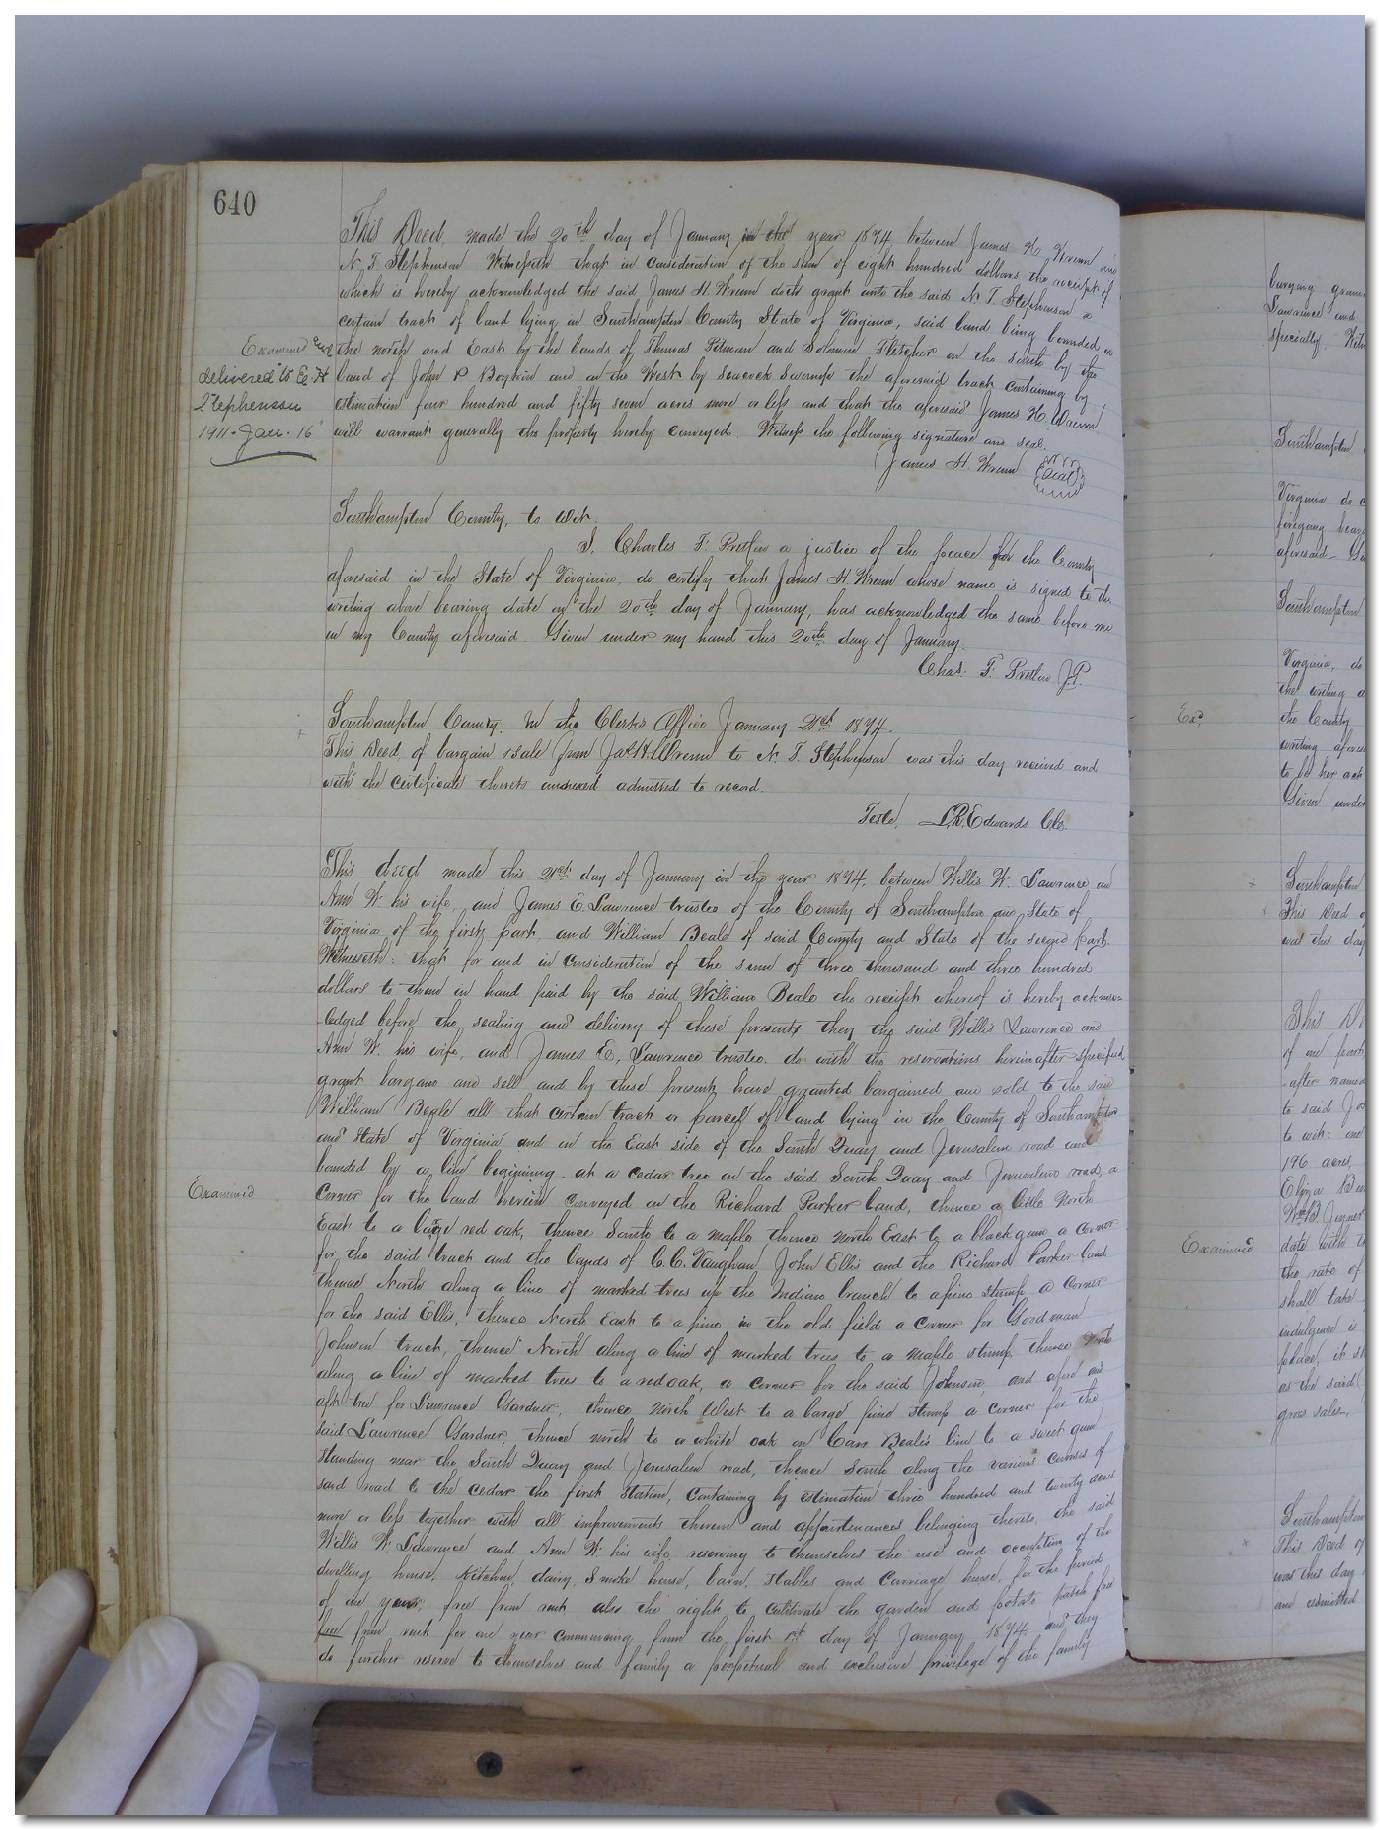 640
This Deed, made the 20th day of January in the year 1874, between James H. Wrenn and
N. T. Stephenson Witnesseth that in consideration of the sum of eight hundred dollars the receipt of
which is hereby acknowledged the said James H. Wrenn doth grant unto the said N. T. Stephenson a
certain tract of land lying in Southampton County State of Virginia, said land being bounded on
the north and East by the lands of Thomas Pitman and Solomon Fletcher on the south by the
land of John P Boykin and on the West by Seacock Swamp the aforesaid tract containing by
estimation four hundred and fifty seven acres more or less and that the aforesaid James H. Wrenn
will warrant generally the property hereby conveyed. Witness the following signature and seal.
James H. Wrenn (Seal)
Examined and
delivered to E. H
Stephenson
1911-Jan-16
Southampton County, to Wit,
I, Charles F. Pretlow a justice of the peace for the County
aforesaid in the State of Virginia, do certify that James H. Wrenn whose name is signed to the
writing above bearing date on the 20th day of January, has acknowledged the same before me
in my County aforesaid. Given under my hand this 20th day of January.
Chas. F. Pretlow J.P.
Southampton County. In the Clerks Office January 21st 1874.
This Deed of bargain & sale from Jas. H. Wrenn to N. T. Stephenson was this day received and
with the certificate thereto annexed admitted to record.
Teste, L.R. Edwards Clk.
This deed made this 21st day of January in the year 1874, between Willis W. Lawrence and
Ann W. his wife, and James E. Lawrence trustee of the County of Southampton and State of
Virginia of the first part, and William Beale of said County and State of the second part.
Witnesseth: that for and in consideration of the sum of three thousand and three hundred
dollars to them in hand paid by the said William Beale the receipt whereof is hereby acknow-
ledged before the sealing and delivery of these presents they the said Willis Lawrence and
Ann W. his wife, and James E. Lawrence trustee, do with the reservations hereinafter specified
grant bargain and sell and by these presents have granted bargained and sold to the said
William Beale all that certain tract or parcel of land lying in the County of Southampton
and State of Virginia and on the East side of the South Quay and Jerusalem road and
bounded by a line beginning at a cedar tree on the said South Quay and Jerusalem road, a
Corner for the land herein conveyed on the Richard Parker land, thence a little North
East to a large red oak, thence South to a maple thence North East to a black gum a corner
for the said tract and the lands of C. C. Vaughan, John Ellis and the Richard Parker land
thence North along a line of marked trees up the Indian branch to a pine stump a Corner
for the said Ellis, thence North East to a pine in the old field a corner for Goodman
Johnson tract, thence North along a line of marked trees to a maple stump, thence North
along a line of marked trees to a red oak, a corner for the said Johnson, and a fore and
aft tree for Lawrence Gardner, thence North West to a large pine stump a corner for the
said Lawrence Gardner, thence north to a white oak on Carr Beale's line to a sweet gum
standing near the South Quay and Jerusalem road, thence South along the various courses of
said road to the cedar the first station, containing by estimation three hundred and twenty acres
more or less together with all improvements thereon and appurtenances belonging thereto, the said
Willis W. Lawrence and Ann W. his wife, reserving to themselves the use and occupation of the
dwelling house, kitchen, dairy, smoke house, barn, stables and Carriage house, for the period
of one year, free from rent, also the right to cultivate the garden and potato patch free
free from rent for one year commencing from the first 1st day of January 1874 and they
do further reserve to themselves and family a perpetual and exclusive privilege of the family
Examined
burying
Lawrence and
specially.
Southampton
Virginia do
foregoing
aforesaid
Southampton
Virginia, do
the writing
the County
writing
to be her
Given under
Exd
Southampton
This Deed
was this day
This
of one part
after
to said
to wit: one
196 acres,
Eliza
date with
the rate of
shall take
indulgence is
place, it
as the said
gross sales,
Examined
Southampton
This Deed of
was this day
and admitted